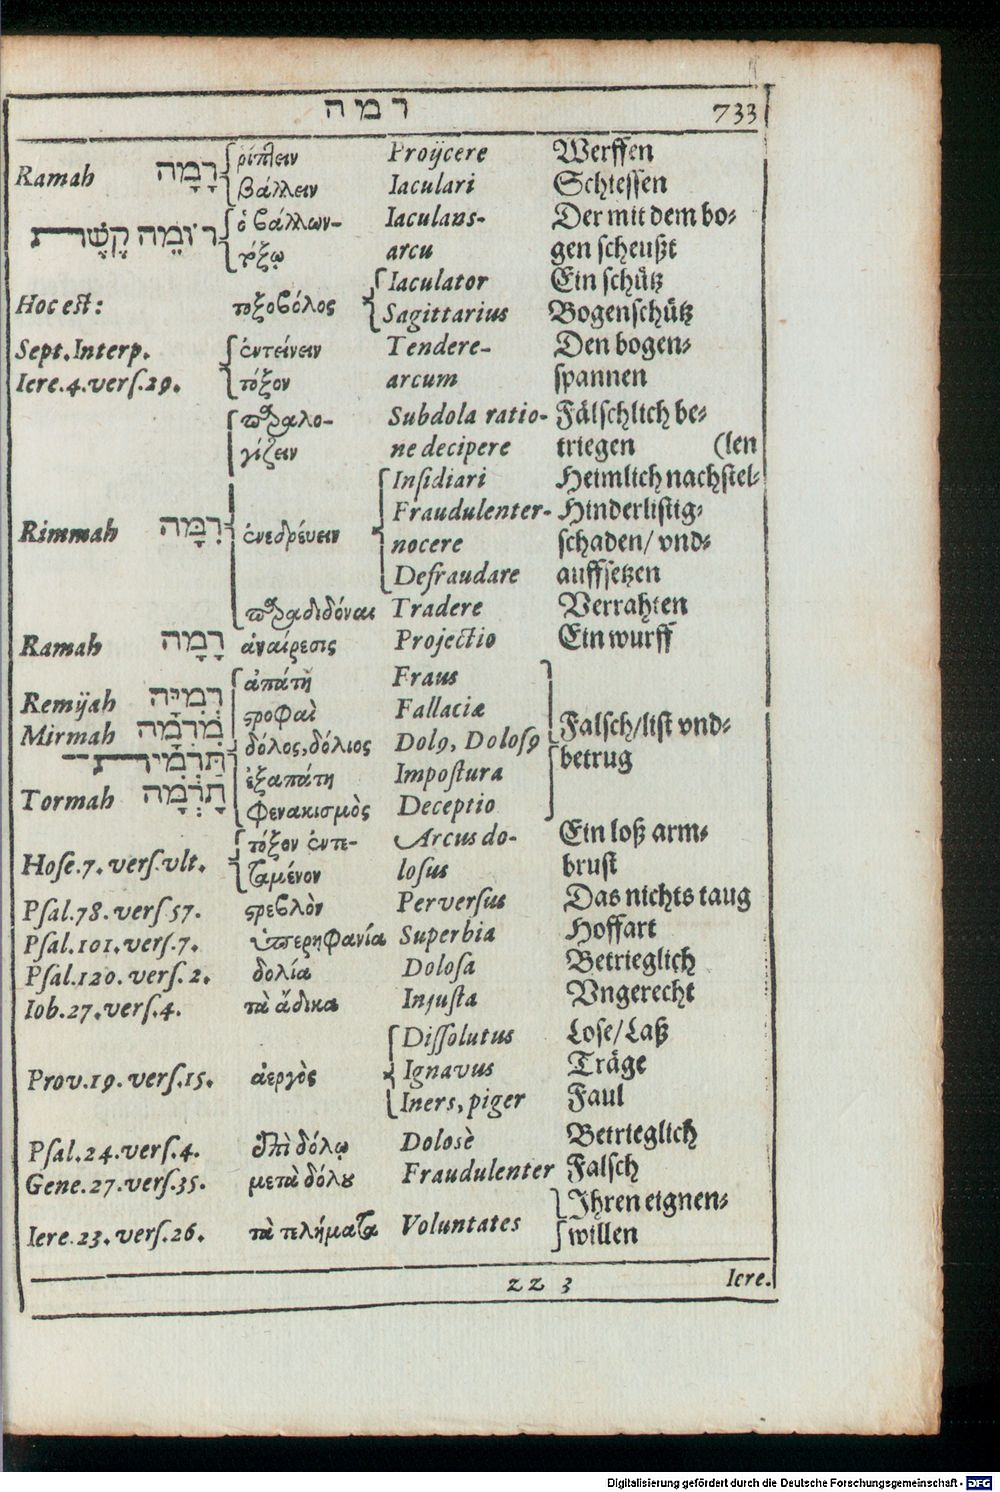 רמה 733
Ramah רָמָה ῥίπτειν Proijcere Werffen
βάλλειν Iaculari Schiessen
רוֹמֵה קֶשֶׁת ὁ βάλλων- Iaculans- Der mit dem bo-
τόξῳ arcu gen scheußt
Iaculator Ein schütz
Hoc est: τοξοβόλος Sagittarius Bogenschütz
Sept.Interp. ἐντείνειν Tendere- Den bogen-
Iere.4.vers.29. τόξον arcum spannen
παραλο- Subdola ratio- Fälschlich be-
γίζειν ne decipere triegen (len
Insidiari Heimlich nachstel-
Fraudulenter- Hinderlistig-
Rimmah רִמָּה ἐνεδρεύειν nocere schaden/ vnd-
Defraudare auffsetzen
παραδιδόναι Tradere Verrahten
Ramah רָמָה ἀναίρεσις Projectio Ein wurff
ἀπάτη Fraus
Remijah רְמִיָּה στροφαὶ Fallaciæ Falsch/list vnd-
Mirmah מִרְמָה δόλος,δόλιος Dolꝰ, Dolosꝰ betrug
תַּרְמִית ἐξαπάτη Impostura
Tormah תָּרְמָה φενακισμὸς Deceptio
τόξον ἐντε- Arcus do- Ein loß arm-
Hose.7.vers.vlt. ταμένον losus brust
Psal.78.vers 57. στρεβλὸν Perversus Das nichts taug
Psal.101.vers.7. ὑπερηφανία Superbia Hoffart
Psal.120.vers.2. δολία Dolosa Betrieglich
Iob.27.vers.4. τὰ ἄδικα Injusta Vngerecht
Dissolutus Lose/Laß
Prov.19.vers.15. ἀεργὸς Ignavus Träge
Iners,piger Faul
Psal.24.vers.4. ἐπὶ δόλῳ Dolosè Betrieglich
Gene.27.vers.35. μετὰ δόλου Fraudulenter Falsch
Ihren eignen-
Iere.23.vers.26. τὰ τελήματα Voluntates willen
zz 3 Iere.
Digitalisierung gefördert durch die Deutsche Forschungsgemeinschaft - DFG